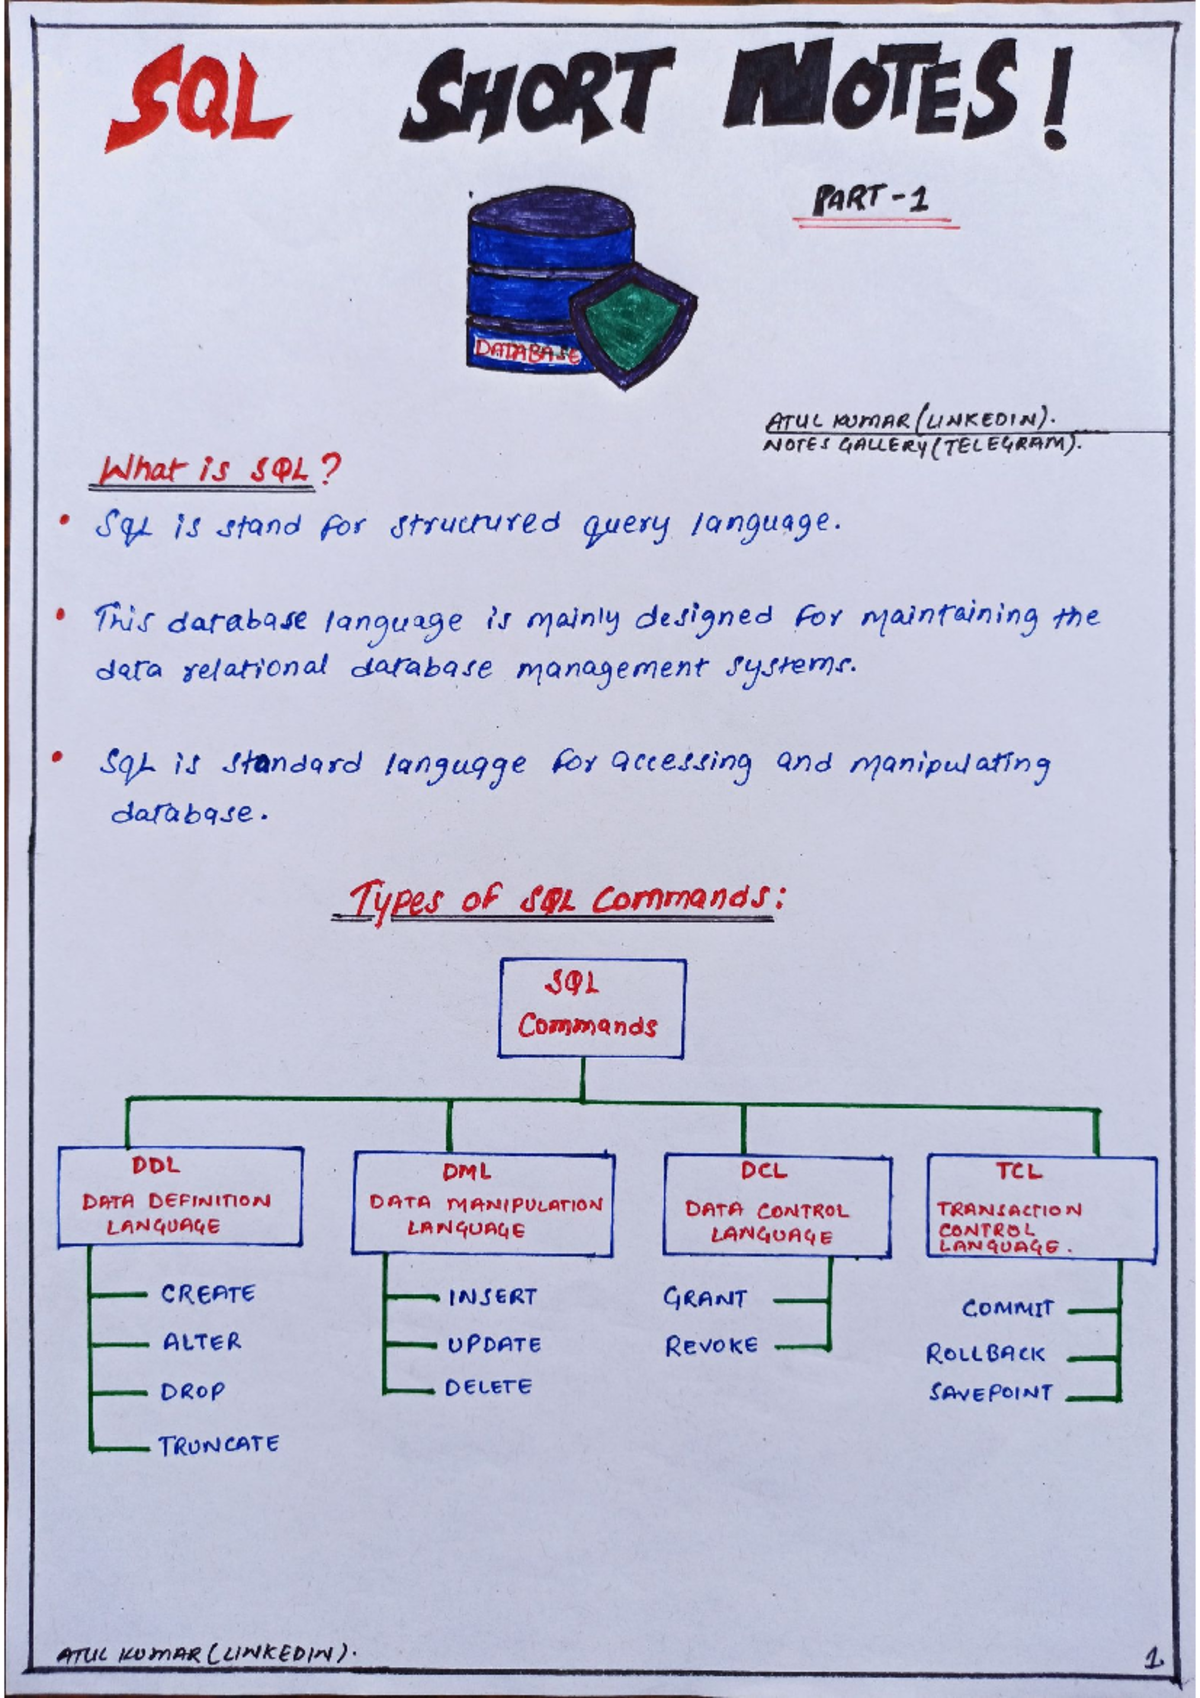 SQL SHORT NOTES!
PART-1
DATABASE
ATUL KUMAR (LINKEDIN).
NOTES GALLERY (TELEGRAM).
What is SQL?
• SQL is stand for structured query language.
• This database language is mainly designed for maintaining the
data relational database management systems.
• SQL is standard language for accessing and manipulating
database.
Types of SQL Commands:
SQL
Commands
DDL
DATA DEFINITION
LANGUAGE
CREATE
ALTER
DROP
TRUNCATE
DML
DATA MANIPULATION
LANGUAGE
INSERT
UPDATE
DELETE
DCL
DATA CONTROL
LANGUAGE
GRANT
REVOKE
TCL
TRANSACTION
CONTROL
LANGUAGE.
COMMIT
ROLLBACK
SAVEPOINT
ATUL KUMAR (LINKEDIN).
1